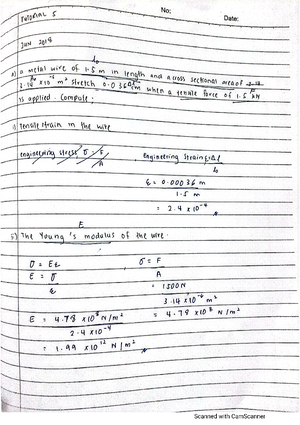 No:
Date:
TUTORIAL 5
JUN 2018
a) a metal wire of 1.5 m in length and a cross sectional area of
3.14 x10⁻⁶ m² stretch 0.036 cm when a tensile force of 1.5 kN
is applied. Compute:
i) tensile strain in the wire
engineering stress, σ = F
A
engineering strain, ε = Δl
l₀
ε = 0.00036 m
1.5 m
= 2.4 x 10⁻⁴
The Young's modulus of the wire.
σ = Eε
E = σ
ε
E = 4.78 x10⁸ N/m²
2.4 x10⁻⁴
= 1.99 x10¹² N/m²
σ = F
A
= 1500N
3.14 x10⁻⁶ m²
= 4.78 x 10⁸ N/m²
Scanned with CamScanner